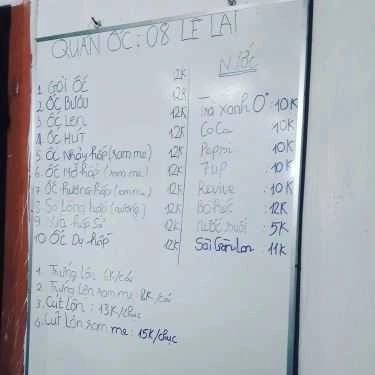 QUÁN ỐC: 08 LÊ LAI
1 GỎI ỐC 12K
2 ỐC BƯƠU 12K
3 ỐC LEN 12K
4 ỐC HÚT 12K
5 ỐC Nhảy hấp (ram me) 12K
6 ỐC Mỡ hấp (ram me) 12K
7 ỐC hương hấp (ram me) 12K
8 Sò Lông hấp (nướng) 12K
9 hấp Sả 12K
10 ỐC Dạ hấp 12K
1. Trứng Lộn 6K/cái
2. Trứng Lộn ram me: 8K/cái
3. Cút Lộn: 13K/chục
4. Cút Lộn ram me: 15K/chục
Nước
Trà xanh 0°: 10K
CoCa: 10K
Pepsi: 10K
7up: 10K
Revive: 10K
Bò húc: 12K
Nước suối: 5K
Sài Gòn Lon: 11K